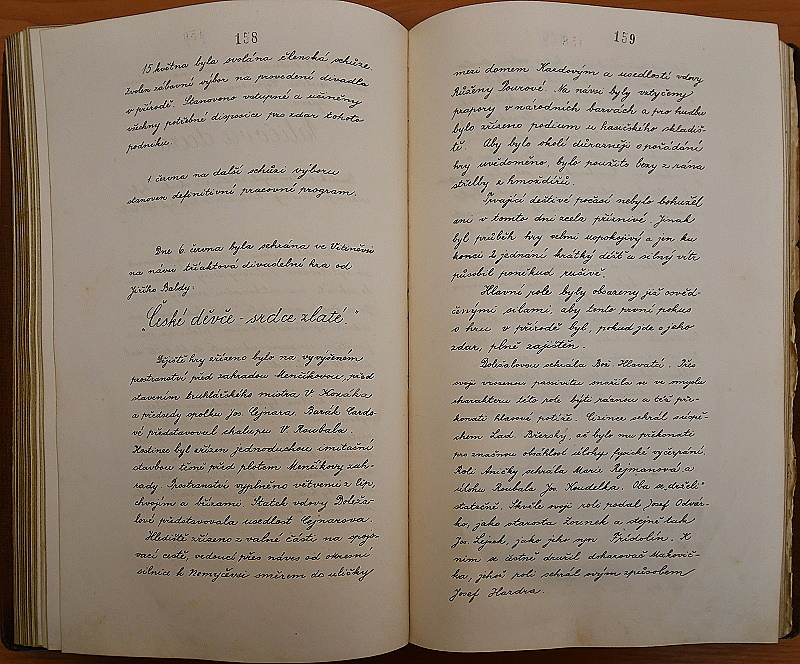 158
15 května byla svolána členská schůze,
zvolen zábavní výbor na provedení divadla
v přírodě. Stanoveno vstupné a učiněny
všechny potřebné disposice pro zdar tohoto
podniku.
1. června na další schůzi výboru
stanoven definitivní pracovní program.
Dne 6. června byla sehrána ve
na návsi tříaktová divadelní hra od
Jiřího Baldy.
„České děvče - srdce zlaté."
Dějiště hry zřízeno bylo na vyvýšeném
prostranství před zahradou Menčíkovou, před
stavením truhlářského mistra V. Nováka
a předsedy spolku Jos. Cejnara. Barák Cardo-
vé představoval chalupu V. Roubala.
Hostinec byl zřízen jednoduchou imitační
stavbou těsně před plotem Menčíkovy zah-
rady. Prostranství vyplněno větvemi z lip,
chvojím a břízami. Statek vdovy Doleža-
lové představovala usedlost Cejnarova.
Hlediště zřízeno z valné části na spojo-
vací cestě, vedoucí přes náves od okresní
silnice k Nemyčevsi směrem do uličky
159
mezi domem Kazdovým a usedlostí vdovy
Růženy Pourové. Na návsi byly vztyčeny
prapory v národních barvách a pro hudbu
bylo zřízeno podium u hasičského skladiš-
tě. Aby bylo okolí důrazněji o pořádání
hry uvědoměno, bylo použito bezy z rána
střelby z hmoždířů.
Trvající deštivé počasí nebylo bohužel
ani v tomto dni zcela příznivé. Jinak
byl průběh hry velmi uspokojivý a jen ku
konci 2 jednání krátký déšť a silný vítr
působil poněkud rušivě.
Hlavní role byly obsazeny již osvěd-
čenými silami, aby tento první pokus
o hru v přírodě byl, pokud jde o jeho
zdar, plně zajištěn.
Doležalovou sehrála Bož. Hlovatá. Přes
svoji vrozenou pasivitu snažila se ve smyslu
charakteru této role býti ráznou a též pře-
konati hlasové potíže. Cizince sehrál úspě-
chem Lad. Brzeský, ač bylo mu překonati
pro značnou obsáhlost úlohy fysické vyčerpání.
Roli Aničky sehrála Marie Rejmanová a
úlohu Roubala Jos. Koudelka. Oba se „drželi"
statečně. Skvěle svoji roli podal Josef Odvár-
ko, jako starosta Zounek a stejně tak
Jos. Lepek, jako jeho syn Fridolín. K
nim se čestně družil dohazovač Makovič-
ka, jehož roli sehrál svým způsobem
Josef Hardra.